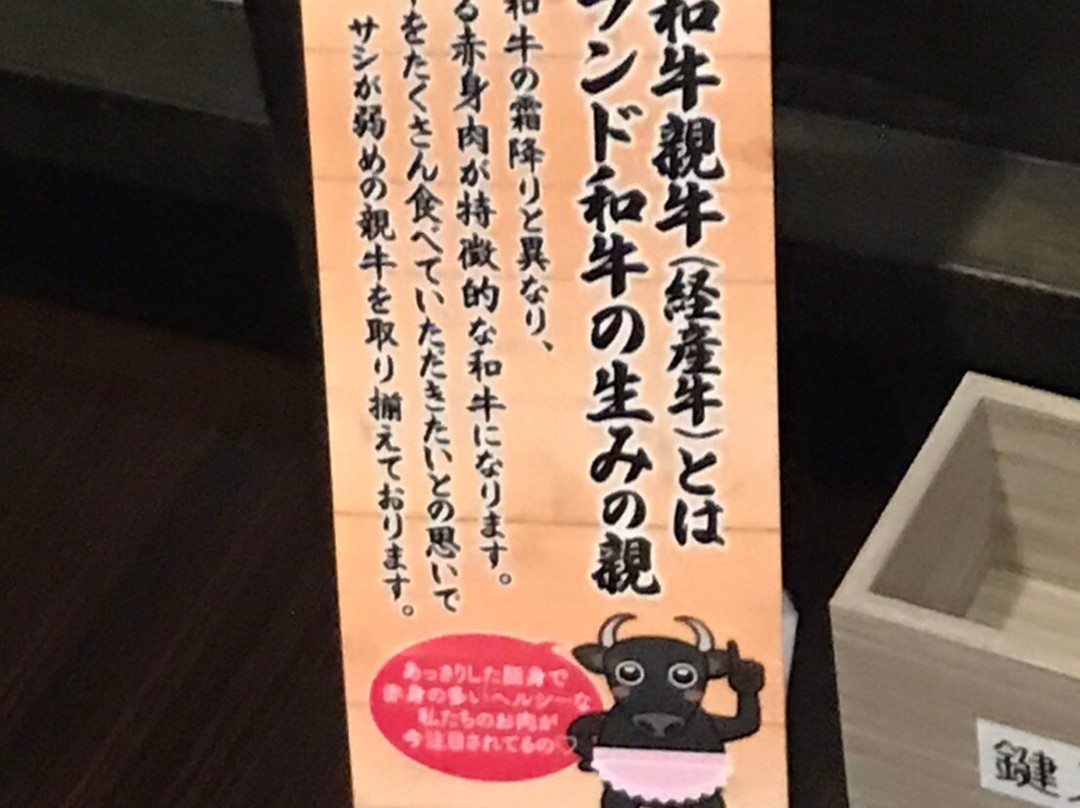 和牛親牛(経産牛)とは
ランド和牛の生みの親
和牛の霜降りと異なり、
る赤身肉が特徴的な和牛になります。
をたくさん食べていただきたいとの思いで
サシが弱めの親牛を取り揃えております。
あっさりした
赤身の多いヘルシーな
私たちのお肉が
今注目されてるの♡
鍵